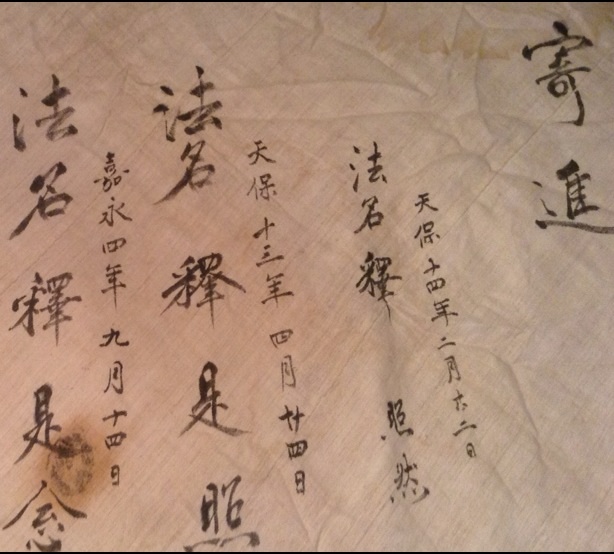 寄進
天保十四年二月十二日
法名釋 照然
天保十三年 四月廿四日
法名 釋是照
嘉永四年 九月十四日
法名釋是念